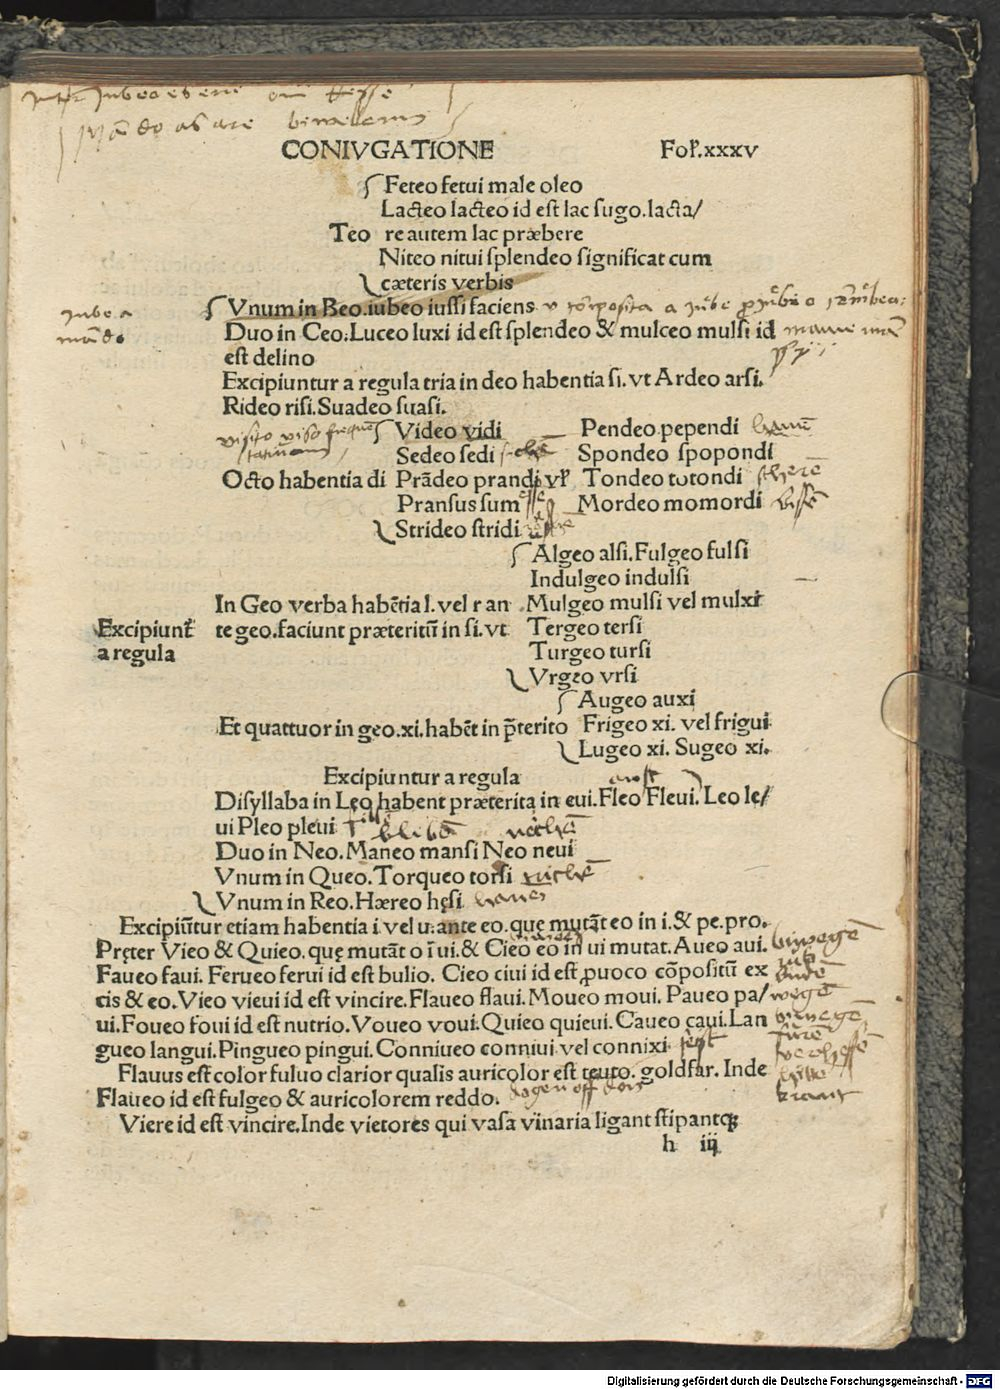 CONIVGATIONE Fol'.xxxv
Feteo fetui male oleo
Lacteo lacteo id eſt lac ſugo.lacta/
Teo re autem lac præbere
Niteo nitui ſplendeo ſignificat cum
cæteris verbis
Iubeo
mādo
Vnum in Beo.iubeo iuſſi faciens
Duo in Ceo.Luceo luxi id eſt ſplendeo & mulceo mulſi id
eſt delino
Excipiuntur a regula tria in deo habentia ſi.vt Ardeo arſi.
Rideo riſi.Suadeo ſuaſi.
Video vidi Pendeo pependi
Sedeo ſedi Spondeo ſpopondi
Octo habentia di Prādeo prandi vl' Tondeo totondi
Pranſus ſum Mordeo momordi
Strideo ſtridi
Algeo alſi.Fulgeo fulſi
Indulgeo indulſi
In Geo verba habētia l.vel r an Mulgeo mulſi vel mulxi
Excipiunt̃ te geo.faciunt præteritū in ſi.vt Tergeo terſi
a regula Turgeo turſi
Vrgeo vrſi
Augeo auxi
Et quattuor in geo.xi.habēt in p̄terito Frigeo xi. vel frigui
Lugeo xi. Sugeo xi.
Excipiuntur a regula
Diſyllaba in Leo habent præterita in eui.Fleo Fleui.Leo le/
ui Pleo pleui
Duo in Neo.Maneo manſi Neo neui
Vnum in Queo.Torqueo torſi
Vnum in Reo.Hæreo hęſi
Excipiūtur etiam habentia i vel u.ante eo.quę mutāt eo in i.& pe.pro.
Pręter Vieo & Quieo.quę mutāt o ī ui.& Cieo eo in ui mutat.Aueo aui.
Faueo faui. Ferueo ferui id eſt bulio. Cieo ciui id eſt ꝓuoco cōpoſitū ex
cis & eo.Vieo vieui id eſt vincire.Flaueo flaui.Moueo moui. Paueo pa/
ui.Foueo foui id eſt nutrio.Voueo voui.Quieo quieui.Caueo caui.Lan
gueo langui.Pingueo pingui.Conniueo conniui vel connixi
Flauus eſt color fuluo clarior qualis auricolor eſt teuto. goldfar. Inde
Flaueo id eſt fulgeo & auricolorem reddo.
Viere id eſt vincire.Inde vietores qui vaſa vinaria ligant ſtipantqꝫ
h iij
Digitalisierung gefördert durch die Deutsche Forschungsgemeinschaft - DFG